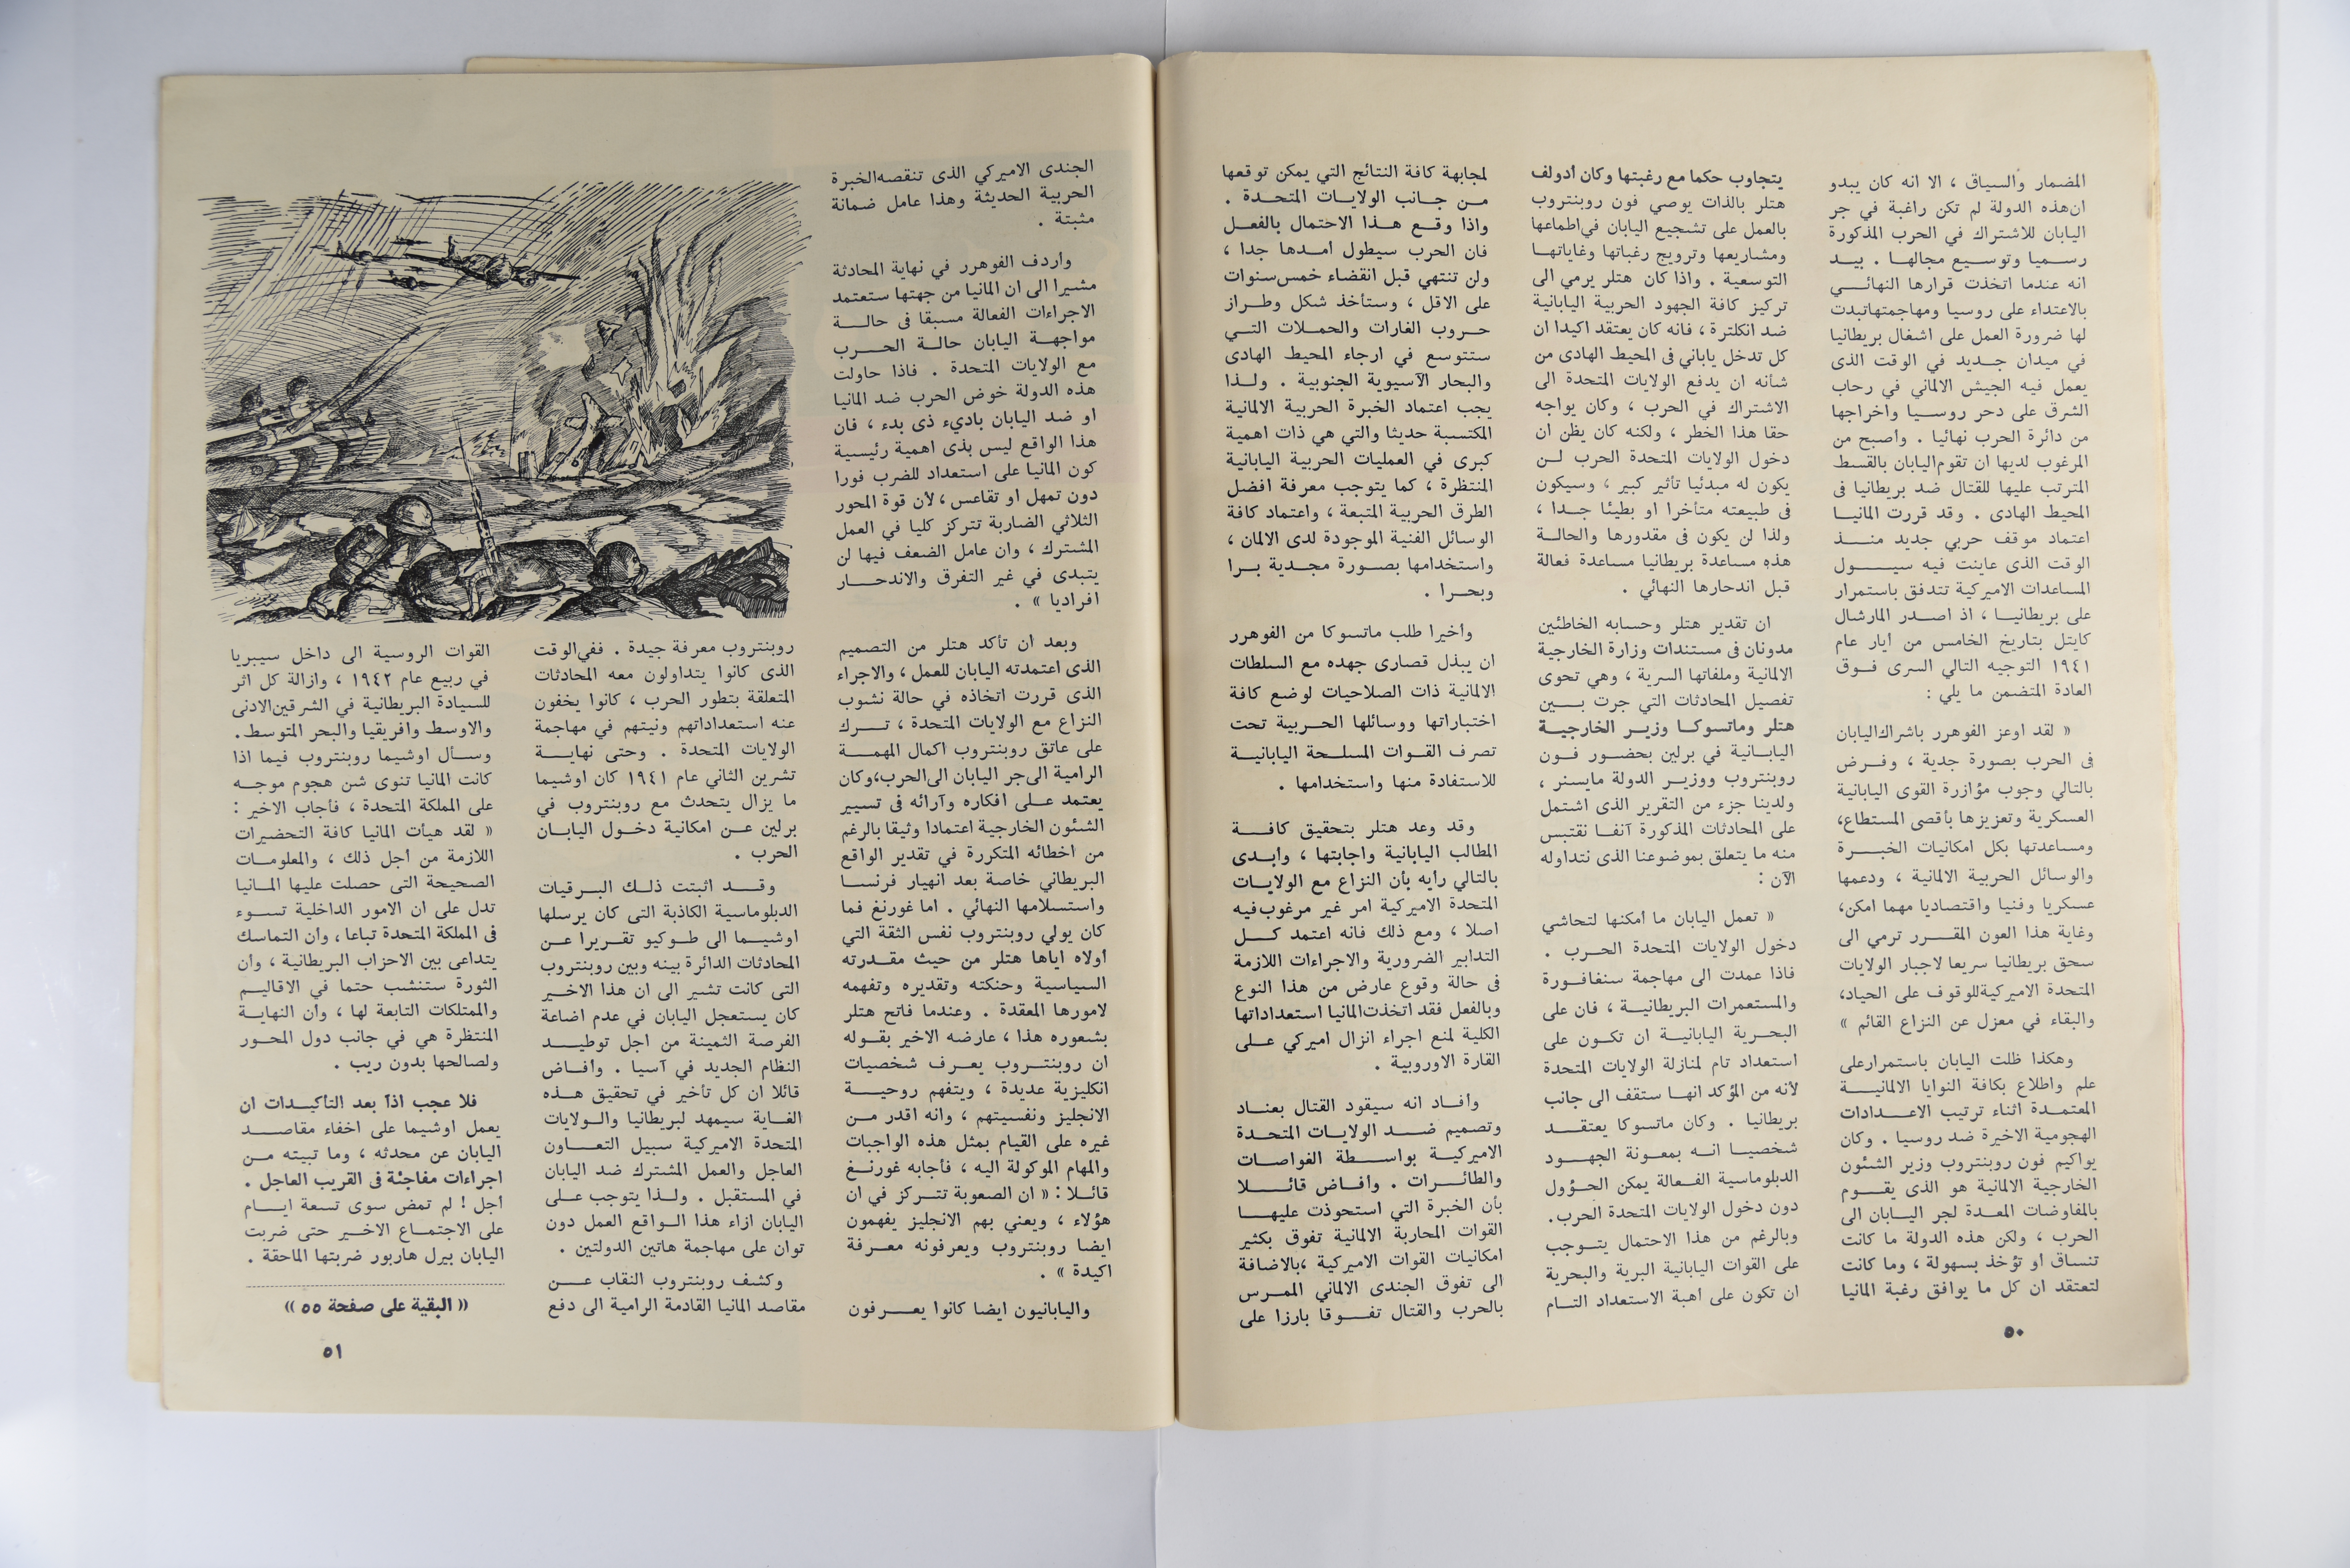 المضمار والسياق ، الا انه كان يبدو
ان هذه الدولة لم تكن راغبة في جر
اليابان للاشتراك في الحرب المذكورة
رسميا وتوسيع مجالها . بيد
انه عندما اتخذت قرارها النهائي
بالاعتداء على روسيا ومهاجمتها تبدت
لها ضرورة العمل على اشغال بريطانيا
في ميدان جديد في الوقت الذى
يعمل فيه الجيش الالماني في رحاب
الشرق على دحر روسيا واخراجها
من دائرة الحرب نهائيا . واصبح من
المرغوب لديها ان تقوم اليابان بالقسط
المترتب عليها للقتال ضد بريطانيا فى
المحيط الهادى . وقد قررت المانيا
اعتماد موقف حربي جديد منذ
الوقت الذى عاينت فيه سيول
المساعدات الاميركية تتدفق باستمرار
على بريطانيا ، اذ اصدر المارشال
كايتل بتاريخ الخامس من ايار عام
١٩٤١ التوجيه التالي السرى فوق
العادة المتضمن ما يلي :
« لقد اوعز الفوهرر باشراك اليابان
فى الحرب بصورة جدية ، وفرض
بالتالي وجوب مؤازرة القوى اليابانية
العسكرية وتعزيزها بأقصى المستطاع،
ومساعدتها بكل امكانيات الخبرة
والوسائل الحربية الالمانية ، ودعمها
عسكريا وفنيا واقتصاديا مهما امكن،
وغاية هذا العون المقرر ترمي الى
سحق بريطانيا سريعا لاجبار الولايات
المتحدة الاميركية للوقوف على الحياد،
والبقاء في معزل عن النزاع القائم »
وهكذا ظلت اليابان باستمرار على
علم واطلاع بكافة النوايا الالمانية
المعتمدة اثناء ترتيب الاعدادات
الهجومية الاخيرة ضد روسيا . وكان
يواكيم فون روبنتروب وزير الشئون
الخارجية الالمانية هو الذى يقوم
بالمفاوضات المعدة لجر اليابان الى
الحرب ، ولكن هذه الدولة ما كانت
تنساق او تؤخذ بسهولة ، وما كانت
لتعتقد ان كل ما يوافق رغبة المانيا
يتجاوب حكما مع رغبتها وكان أدولف
هتلر بالذات يوصي فون روبنتروب
بالعمل على تشجيع اليابان في اطماعها
ومشاريعها وترويج رغباتها وغاياتها
التوسعية . واذا كان هتلر يرمي الى
تركيز كافة الجهود الحربية اليابانية
ضد انكلترة ، فانه كان يعتقد اكيدا ان
كل تدخل ياباني فى المحيط الهادى من
شأنه ان يدفع الولايات المتحدة الى
الاشتراك في الحرب ، وكان يواجه
حقا هذا الخطر ، ولكنه كان يظن ان
دخول الولايات المتحدة الحرب لن
يكون له مبدئيا تأثير كبير ، وسيكون
فى طبيعته متأخرا او بطيئا جدا ،
ولذا لن يكون فى مقدورها والحالة
هذه مساعدة بريطانيا مساعدة فعالة
قبل اندحارها النهائي .
ان تقدير هتلر وحسابه الخاطئين
مدونان فى مستندات وزارة الخارجية
الالمانية وملفاتها السرية ، وهي تحوى
تفصيل المحادثات التي جرت بين
هتلر وماتسوكا وزير الخارجية
اليابانية في برلين بحضور فون
روبنتروب ووزير الدولة مايسنر ،
ولدينا جزء من التقرير الذى اشتمل
على المحادثات المذكورة آنفا نقتبس
منه ما يتعلق بموضوعنا الذى نتداوله
الآن :
« تعمل اليابان ما امكنها لتحاشي
دخول الولايات المتحدة الحرب .
فاذا عمدت الى مهاجمة سنغافورة
والمستعمرات البريطانية ، فان على
البحرية اليابانية ان تكون على
استعداد تام لمنازلة الولايات المتحدة
لأنه من المؤكد انها ستقف الى جانب
بريطانيا . وكان ماتسوكا يعتقد
شخصيا انه بمعونة الجهود
الدبلوماسية الفعالة يمكن الحؤول
دون دخول الولايات المتحدة الحرب.
وبالرغم من هذا الاحتمال يتوجب
على القوات اليابانية البرية والبحرية
ان تكون على اهبة الاستعداد التام
لمجابهة كافة النتائج التي يمكن توقعها
من جانب الولايات المتحدة .
واذا وقع هذا الاحتمال بالفعل
فان الحرب سيطول أمدها جدا ،
ولن تنتهي قبل انقضاء خمس سنوات
على الاقل ، وستأخذ شكل وطراز
حروب الغارات والحملات التي
ستتوسع في ارجاء المحيط الهادى
والبحار الآسيوية الجنوبية . ولذا
يجب اعتماد الخبرة الحربية الالمانية
المكتسبة حديثا والتي هي ذات اهمية
كبرى في العمليات الحربية اليابانية
المنتظرة ، كما يتوجب معرفة افضل
الطرق الحربية المتبعة ، واعتماد كافة
الوسائل الفنية الموجودة لدى الالمان ،
واستخدامها بصورة مجدية برا
وبحرا .
واخيرا طلب ماتسوكا من الفوهرر
ان يبذل قصارى جهده مع السلطات
الالمانية ذات الصلاحيات لوضع كافة
اختباراتها ووسائلها الحربية تحت
تصرف القوات المسلحة اليابانية
للاستفادة منها واستخدامها .
وقد وعد هتلر بتحقيق كافة
المطالب اليابانية واجابتها ، وابدى
بالتالي رأيه بأن النزاع مع الولايات
المتحدة الاميركية امر غير مرغوب فيه
اصلا ، ومع ذلك فانه اعتمد كل
التدابير الضرورية والاجراءات اللازمة
فى حالة وقوع عارض من هذا النوع
وبالفعل فقد اتخذت المانيا استعداداتها
الكلية لمنع اجراء انزال اميركي على
القارة الاوروبية .
وافاد انه سيقود القتال بعناد
وتصميم ضد الولايات المتحدة
الاميركية بواسطة الغواصات
والطائرات . وافاض قائلا
بأن الخبرة التي استحوذت عليها
القوات المحاربة الالمانية تفوق بكثير
امكانيات القوات الاميركية ،بالاضافة
الى تفوق الجندى الالماني الممرس
بالحرب والقتال تفوقا بارزا على
٥٠
الجندى الاميركي الذى تنقصه الخبرة
الحربية الحديثة وهذا عامل ضمانة
مثبتة .
واردف الفوهرر في نهاية المحادثة
مشيرا الى ان المانيا من جهتها ستعتمد
الاجراءات الفعالة مسبقا فى حالة
مواجهة اليابان حالة الحرب
مع الولايات المتحدة . فاذا حاولت
هذه الدولة خوض الحرب ضد المانيا
او ضد اليابان باديء ذى بدء ، فان
هذا الواقع ليس بذى اهمية رئيسية
كون المانيا على استعداد للضرب فورا
دون تمهل او تقاعس ، لأن قوة المحور
الثلاثي الضاربة تتركز كليا في العمل
المشترك ، وان عامل الضعف فيها لن
يتبدى في غير التفرق والاندحار
افراديا » .
وبعد ان تأكد هتلر من التصميم
الذى اعتمدته اليابان للعمل ، والاجراء
الذى قررت اتخاذه في حالة نشوب
النزاع مع الولايات المتحدة ، ترك
على عاتق روبنتروب اكمال المهمة
الرامية الى جر اليابان الى الحرب،وكان
يعتمد على افكاره وآرائه فى تسيير
الشئون الخارجية اعتمادا وثيقا بالرغم
من اخطائه المتكررة في تقدير الواقع
البريطاني خاصة بعد انهيار فرنسا
واستسلامها النهائي . اما غورنغ فما
كان يولي روبنتروب نفس الثقة التي
أولاه اياها هتلر من حيث مقدرته
السياسية وحنكته وتقديره وتفهمه
لامورها المعقدة . وعندما فاتح هتلر
بشعوره هذا ، عارضه الاخير بقوله
ان روبنتروب يعرف شخصيات
انكليزية عديدة ، ويتفهم روحية
الانجليز ونفسيتهم ، وانه اقدر من
غيره على القيام بمثل هذه الواجبات
والمهام الموكولة اليه ، فأجابه غورنغ
قائلا : « ان الصعوبة تتركز في ان
هؤلاء ، ويعني بهم الانجليز يفهمون
ايضا روبنتروب ويعرفونه معرفة
اكيدة » .
واليابانيون ايضا كانوا يعرفون
روبنتروب معرفة جيدة . ففي الوقت
الذى كانوا يتداولون معه المحادثات
المتعلقة بتطور الحرب ، كانوا يخفون
عنه استعداداتهم ونيتهم في مهاجمة
الولايات المتحدة . وحتى نهاية
تشرين الثاني عام ١٩٤١ كان اوشيما
ما يزال يتحدث مع روبنتروب في
برلين عن امكانية دخول اليابان
الحرب .
وقد اثبتت ذلك البرقيات
الدبلوماسية الكاذبة التى كان يرسلها
اوشيما الى طوكيو تقريرا عن
المحادثات الدائرة بينه وبين روبنتروب
التى كانت تشير الى ان هذا الاخير
كان يستعجل اليابان في عدم اضاعة
الفرصة الثمينة من اجل توطيد
النظام الجديد في آسيا . وافاض
قائلا ان كل تأخير في تحقيق هذه
الغاية سيمهد لبريطانيا والولايات
المتحدة الاميركية سبيل التعاون
العاجل والعمل المشترك ضد اليابان
في المستقبل . ولذا يتوجب على
اليابان ازاء هذا الواقع العمل دون
توان على مهاجمة هاتين الدولتين .
وكشف روبنتروب النقاب عن
مقاصد المانيا القادمة الرامية الى دفع
القوات الروسية الى داخل سيبريا
في ربيع عام ١٩٤٢ ، وازالة كل اثر
للسيادة البريطانية في الشرقين الادنى
والاوسط وافريقيا والبحر المتوسط.
وسأل اوشيما روبنتروب فيما اذا
كانت المانيا تنوى شن هجوم موجه
على المملكة المتحدة ، فأجاب الاخير :
« لقد هيأت المانيا كافة التحضيرات
اللازمة من أجل ذلك ، والمعلومات
الصحيحة التى حصلت عليها المانيا
تدل على ان الامور الداخلية تسوء
فى المملكة المتحدة تباعا ، وان التماسك
يتداعى بين الاحزاب البريطانية ، وان
الثورة ستنشب حتما في الاقاليم
والممتلكات التابعة لها ، وان النهاية
المنتظرة هي في جانب دول المحور
ولصالحها بدون ريب .
فلا عجب اذآ بعد التأكيدات ان
يعمل اوشيما على اخفاء مقاصد
اليابان عن محدثه ، وما تبيته من
اجراءات مفاجئة فى القريب العاجل .
اجل ! لم تمض سوى تسعة ايام
على الاجتماع الاخير حتى ضربت
اليابان بيرل هاربور ضربتها الماحقة .
« البقية على صفحة ٥٥ »
٥١